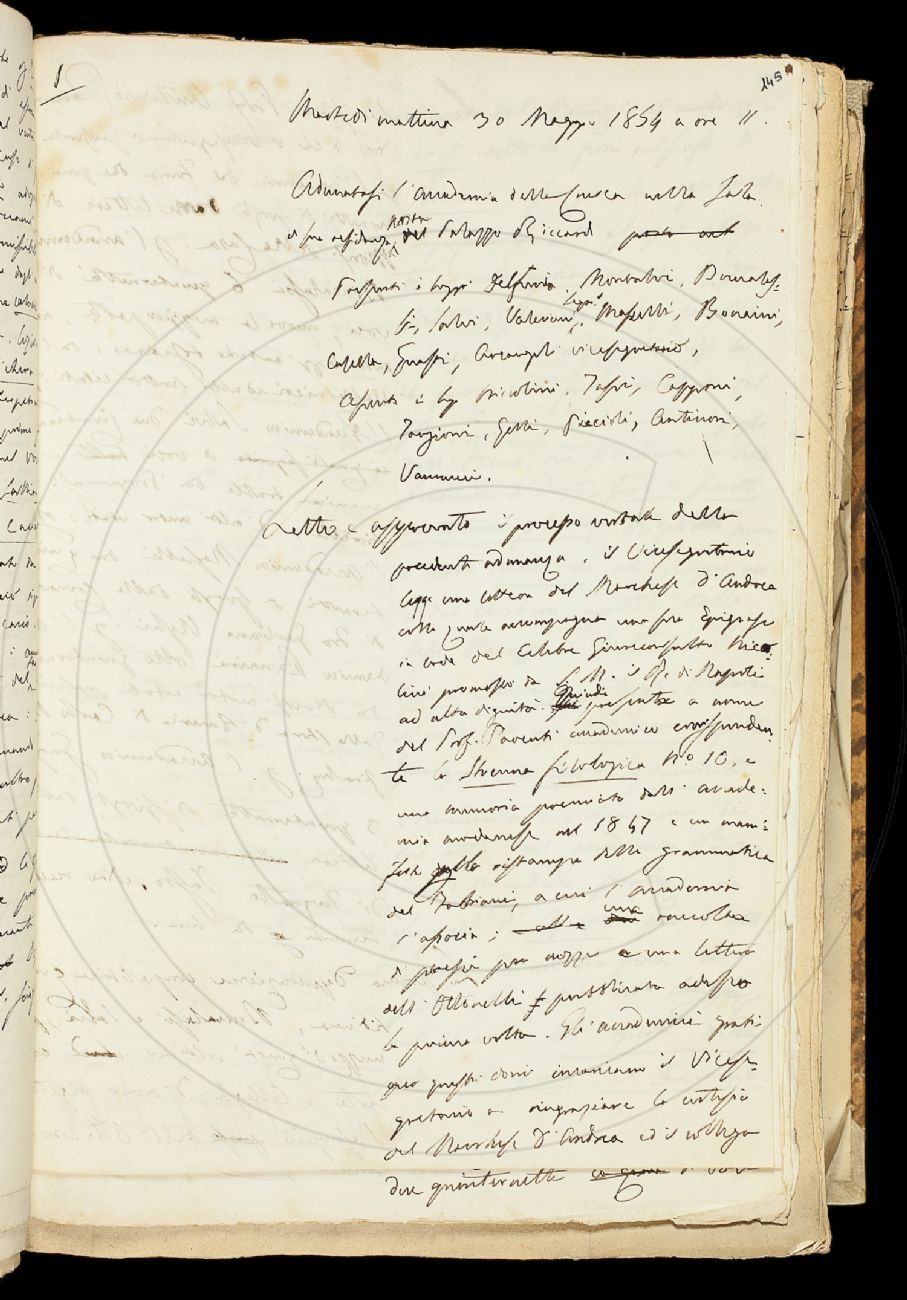 1
145
Martedì mattina 30 Maggio 1854 a ore 11.
Adunatasi l'Accademia della Crusca nella Sala
di sua residenza, posta nel Palazzo Riccardi posta nel
Presenti i Sopri Delfuria, Montalvi, Brucalas-
si, Salvi, Valeriani, Segni, Masselli, Bonaini,
Casella, Guasti, Arcangeli vicesegretario,
Assenti i Sigg Niccolini, Tassi, Capponi,
Targioni, Gelli, Puccioli, Antinori,
Vannucci.
Letto e approvato il processo verbale della
precedente adunanza, il Vicesegretario
legge una lettera del Marchese d'Andrea
colla quale accompagna una sua Epigrafe
in lode del Celebre Giureconsulto Nico-
lini promosso da S. M. il Re di Napoli
ad alta dignità. Quindi presenta a nome
del Prof. Parenti accademico corrisponden-
te la Strenna filologica No 10, e
una memoria premiata dall' accade-
mia modenese nel 1847 e un mani-
festo sulla ristampa della grammatica
del , a cui l'accademia
s'associa; una raccolta
di poesie per nozze e una lettera
dell' Ottonelli pubblicata adesso
la prima volta. Gli accademici grati
per questi doni incaricano il Vicese-
gretario a ringraziare la cortesia
del Marchese d'Andrea ed il collega
due quinternetti